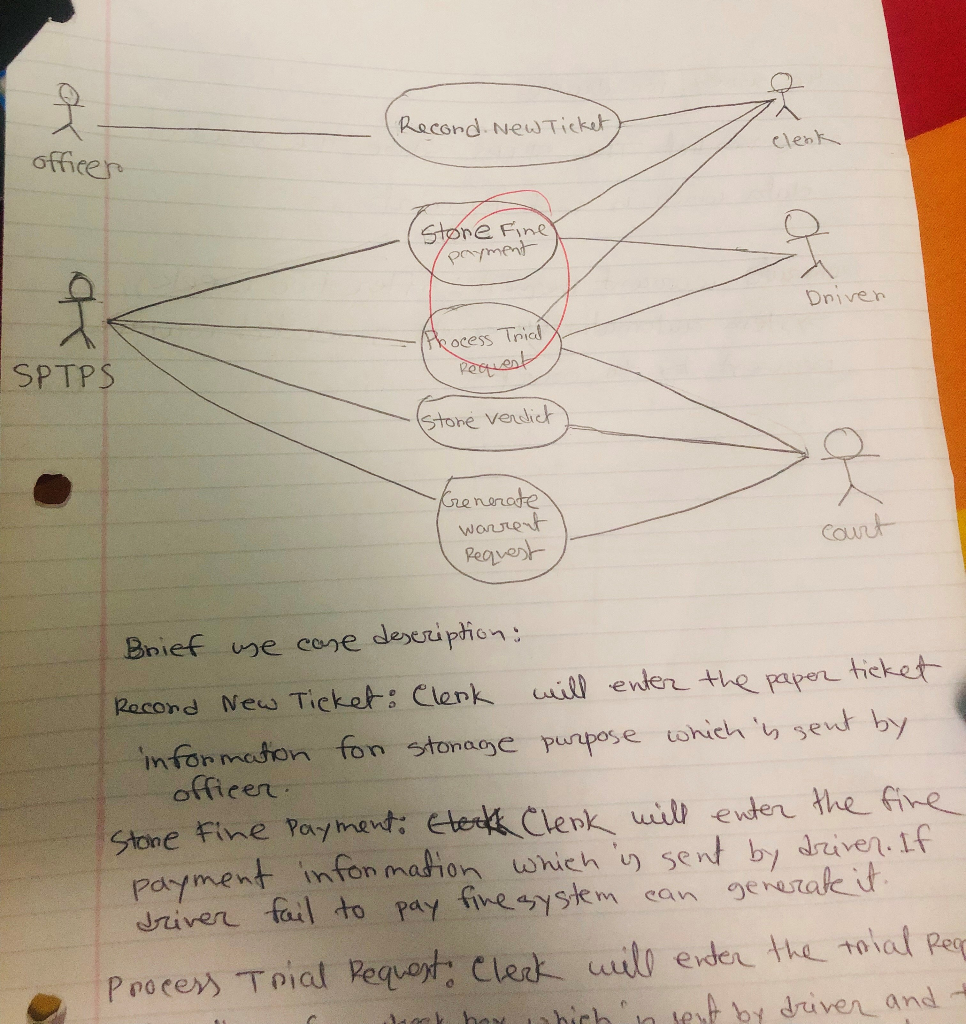 Record New Ticket
Clerk
officer
Store Fine
payment
Driver
Process Trial
Request
SPTPS
Store verdict
Generate
warrent
Request
court
Brief use case description:
Record New Ticket: Clerk will enter the paper ticket
information for storage purpose which is sent by
officer.
Store Fine Payment: Clerk Clerk will enter the fine
payment information which is sent by driver. If
driver fail to pay fine system can generate it.
Process Trial Request: Clerk will enter the trial Req
box which is sent by driver and